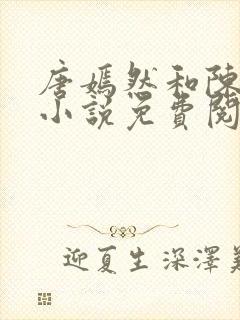 唐嫣然和陳
小說免費閱
迎夏生深澤